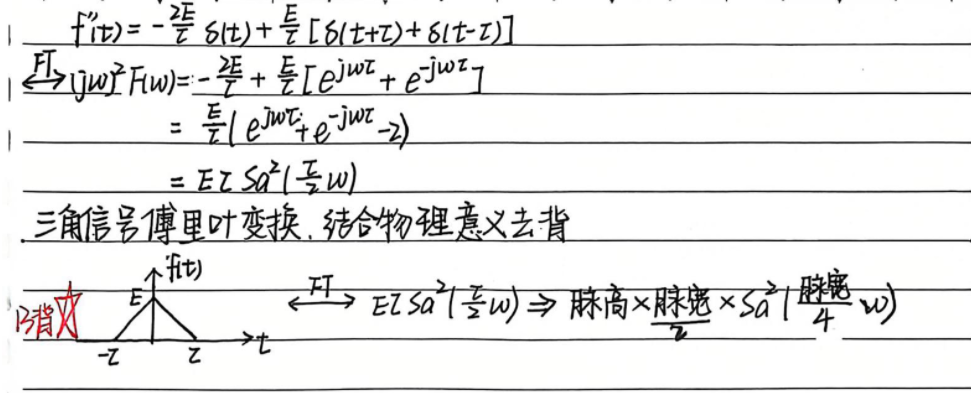 f''(t) = -2E/τ δ(t) + E/τ [δ(t+τ) + δ(t-τ)]
FT⟷ (jω)²F(ω) = -2E/τ + E/τ [e^{jωτ} + e^{-jωτ}]
= E/τ (e^{jωτ} + e^{-jωτ} - 2)
= EτSa²(τ/2 ω)
三角信号傅里叶变换. 结合物理意义去背
背☆ f(t) E -τ τ t FT⟷ EτSa²(τ/2 ω) ⇒ 脉高×脉宽/2×Sa²(脉宽/4 ω)